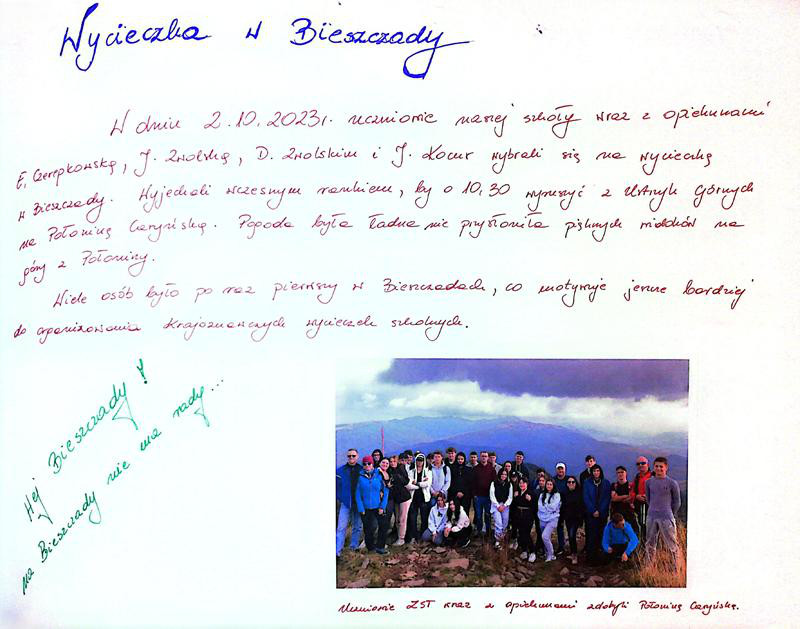 Wycieczka w Bieszczady
W dniu 2.10.2023r. uczniowie naszej szkoły wraz z opiekunami
E. Czerepkowską, J. Zwolską, D. Zwolskim i J. Kocur wybrali się na wycieczkę
w Bieszczady. Wyjechali wczesnym rankiem, by o 10,30 wyruszyć z Ustrzyk Górnych
na Połoninę Caryńską. Pogoda była ładna nie przysłoniła pięknych widoków na
góry z Połoniny.
Wiele osób było po raz pierwszy w Bieszczadach, co motywuje jeszcze bardziej
do organizowania krajoznawczych wycieczek szkolnych.
Hej Bieszczady!
na Bieszczady nie ma rady...
Uczniowie ZST wraz z opiekunami zdobyli Połoninę Caryńską.